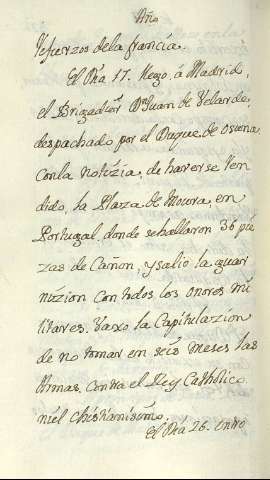 Año
refuerzos dela francia.
El Dia 17. llego, â Madrid,
el Brigadier Dn Juan de Velarde,
despachado por el Duque, de osuna,
conla notizia, de haverse Ren
dido, la Plaza de Moura, en
Portugal, donde sehallaron 36 pie
zas de Cañon, y salio la guar
nizion con todos los onores mi
litares. Vaxo la Capitulazion
de no tomar em seis meses las
Armas. Contra el Rey Catholico
niel christianisimo.
El Dia 26. entro